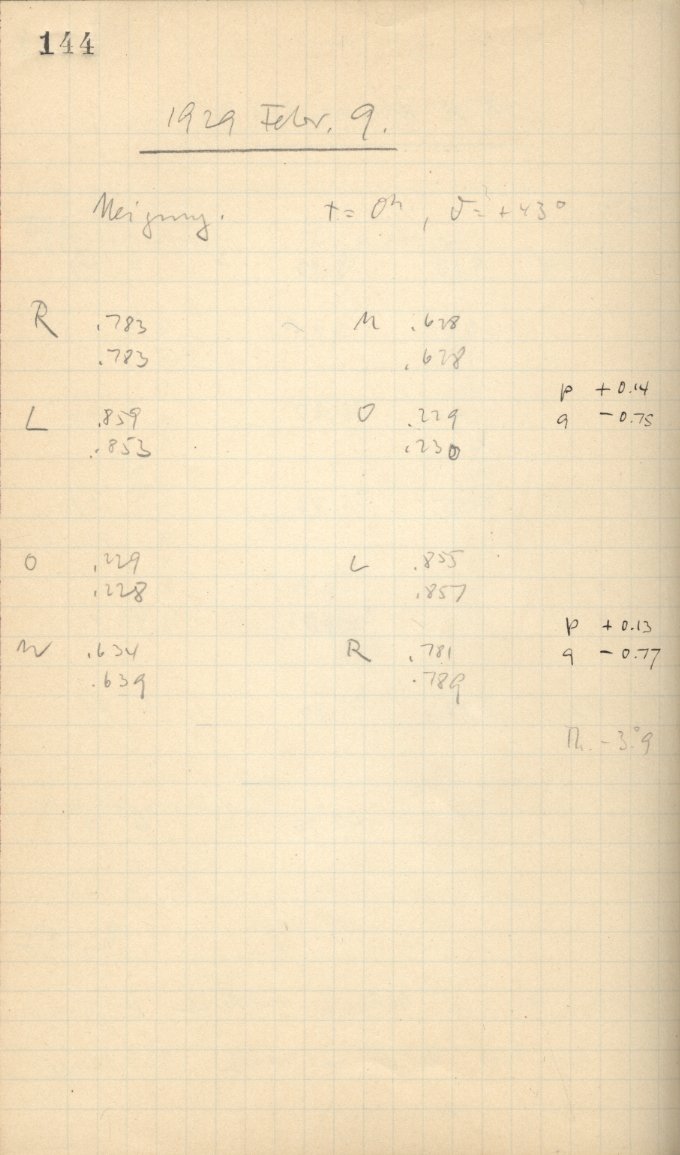 144
1929 Febr. 9.
Neigung. t = 0ʰ, δ = +43°
R .783 M .628
.783 .628
p +0.14
L .859 O .229 q -0.75
.853 .230
O .229 L .855
.228 .857
p +0.13
M .634 R .781 q -0.77
.639 .789
Th. -3°.9